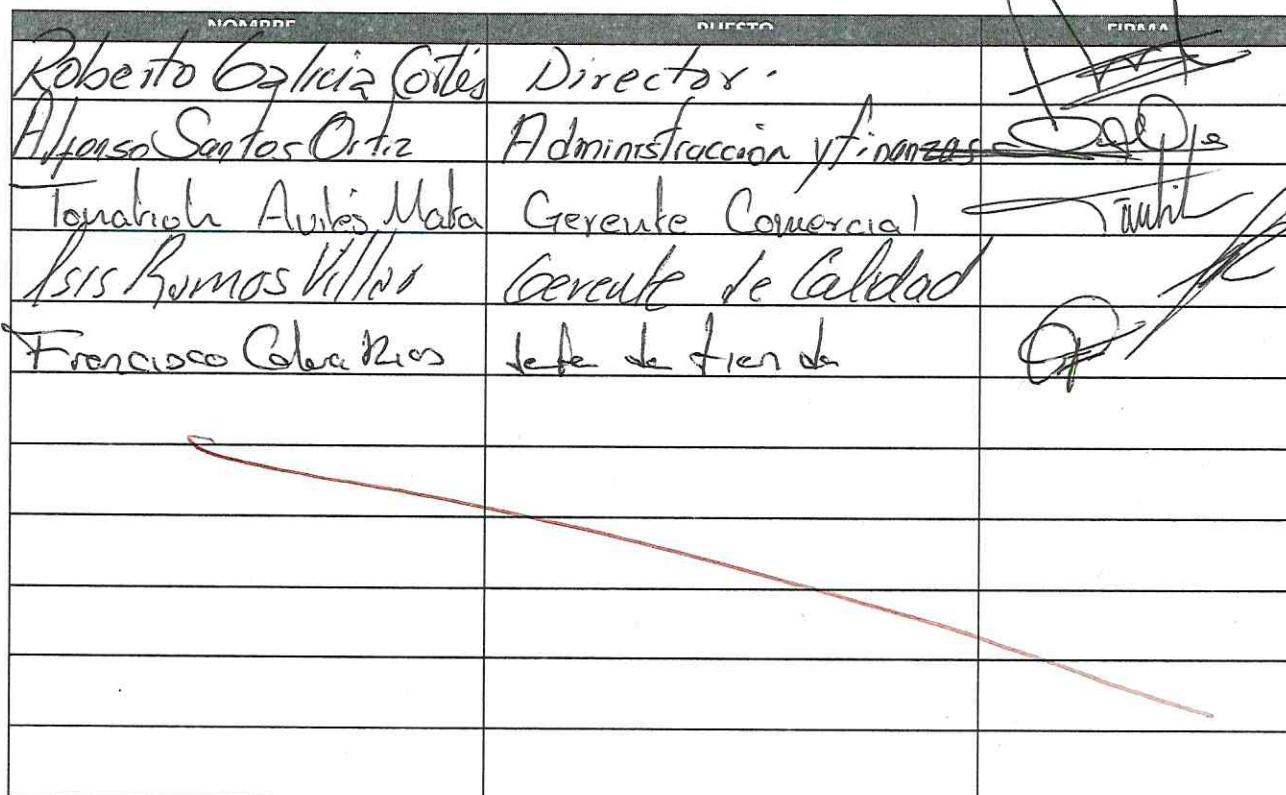 NOMBRE PUESTO FIRMA
Roberto Galicia Cortés Director.
Alfonso Santos Ortiz Administracción y finanzas
Avilés Mata Gerente Comercial
Isis Ramos Villar Gerente de Calidad
Francisco Rios Jefe de tienda